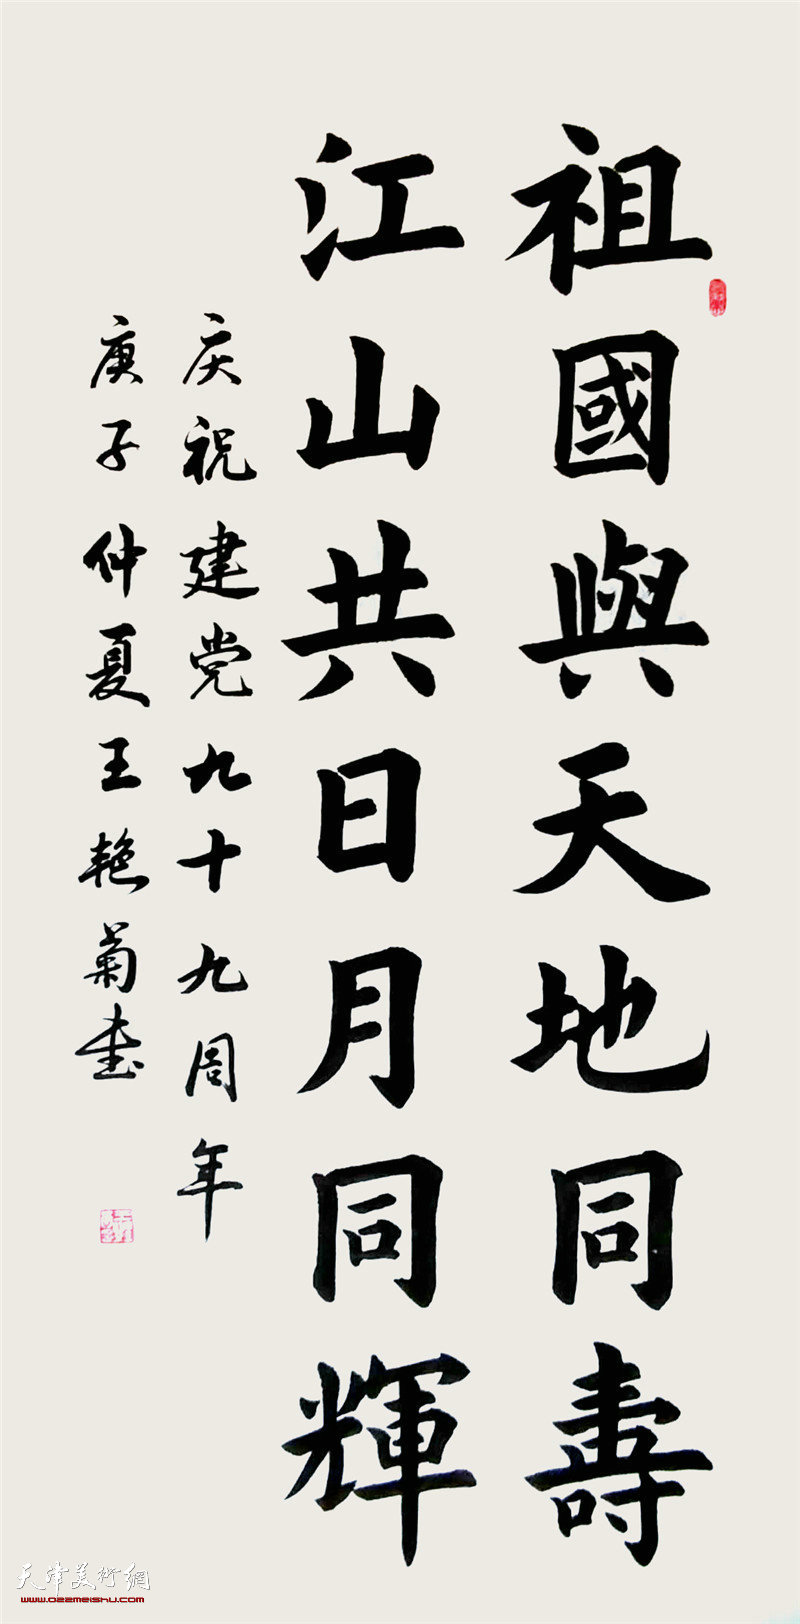 祖國與天地同壽
江山共日月同輝
庆祝建党九十九周年
庚子仲夏王艳菊书
天津美術網
www.022meishu.com